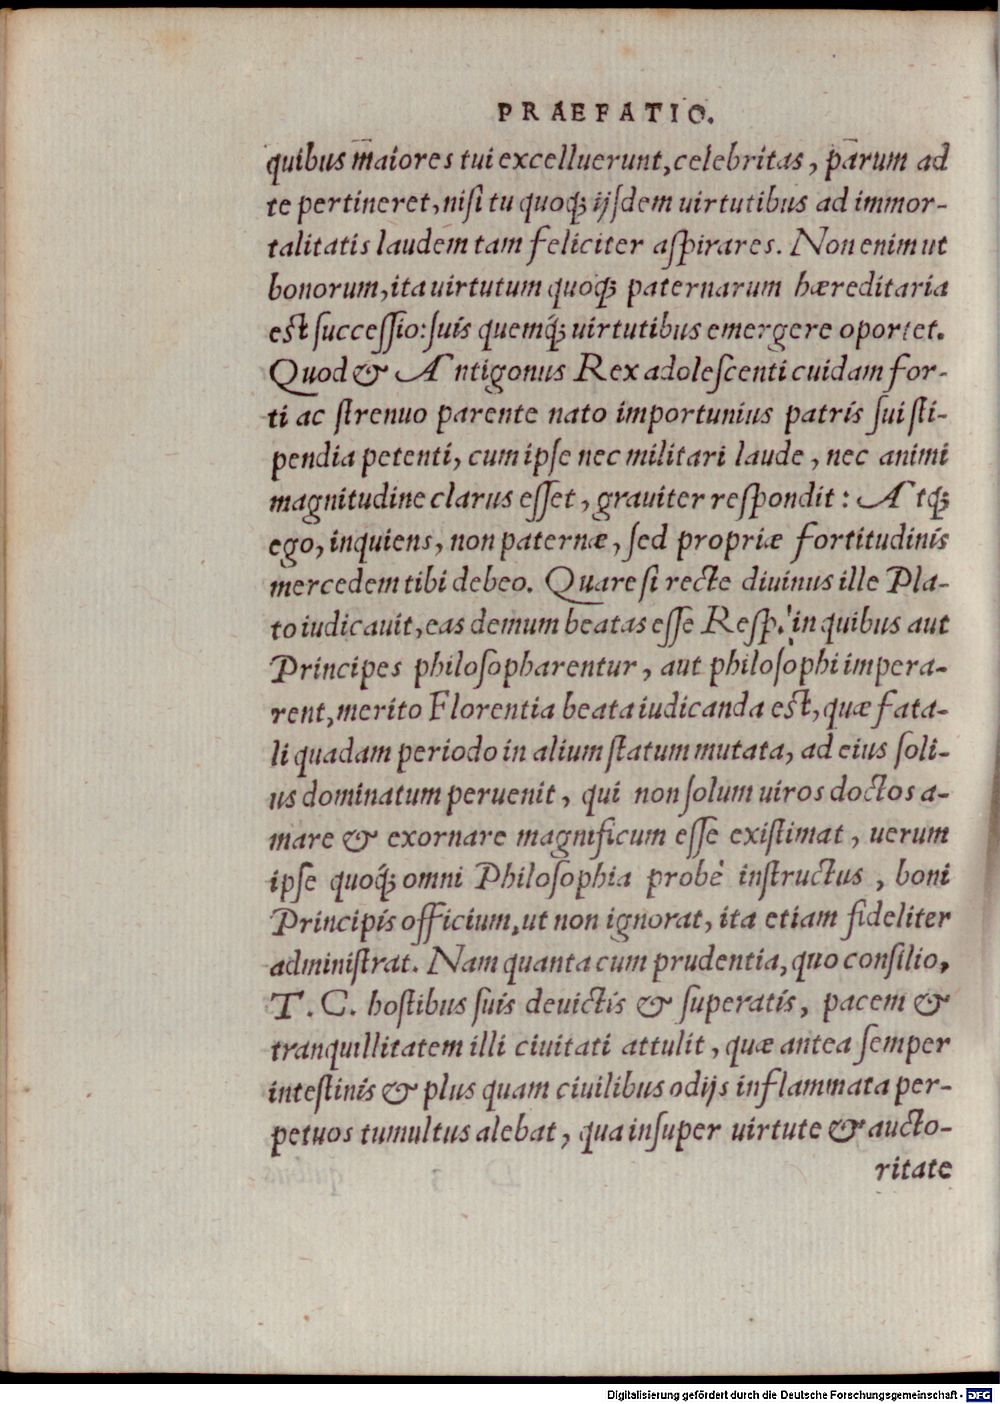 PRAEFATIO.
quibus maiores tui excelluerunt, celebritas, parum ad
te pertineret, nisi tu quoq; ijsdem uirtutibus ad immor-
talitatis laudem tam feliciter aspirares. Non enim ut
bonorum, ita uirtutum quoq; paternarum hæreditaria
est successio: suis quemq; uirtutibus emergere oportet.
Quod & Antigonus Rex adolescenti cuidam for-
ti ac strenuo parente nato importunius patris sui sti-
pendia petenti, cum ipse nec militari laude, nec animi
magnitudine clarus esset, grauiter respondit: Atq;
ego, inquiens, non paternæ, sed propriæ fortitudinis
mercedem tibi debeo. Quare si recte diuinus ille Pla-
to iudicauit, eas demum beatas esse Resp. in quibus aut
Principes philosopharentur, aut philosophi impera-
rent, merito Florentia beata iudicanda est, quæ fata-
li quadam periodo in alium statum mutata, ad eius soli-
us dominatum peruenit, qui non solum uiros doctos a-
mare & exornare magnificum esse existimat, uerum
ipse quoq; omni Philosophia probè instructus, boni
Principis officium, ut non ignorat, ita etiam fideliter
administrat. Nam quanta cum prudentia, quo consilio,
T. C. hostibus suis deuictis & superatis, pacem &
tranquillitatem illi ciuitati attulit, quæ antea semper
intestinis & plus quam ciuilibus odijs inflammata per-
petuos tumultus alebat, qua insuper uirtute & aucto-
ritate
Digitalisierung gefördert durch die Deutsche Forschungsgemeinschaft - DFG